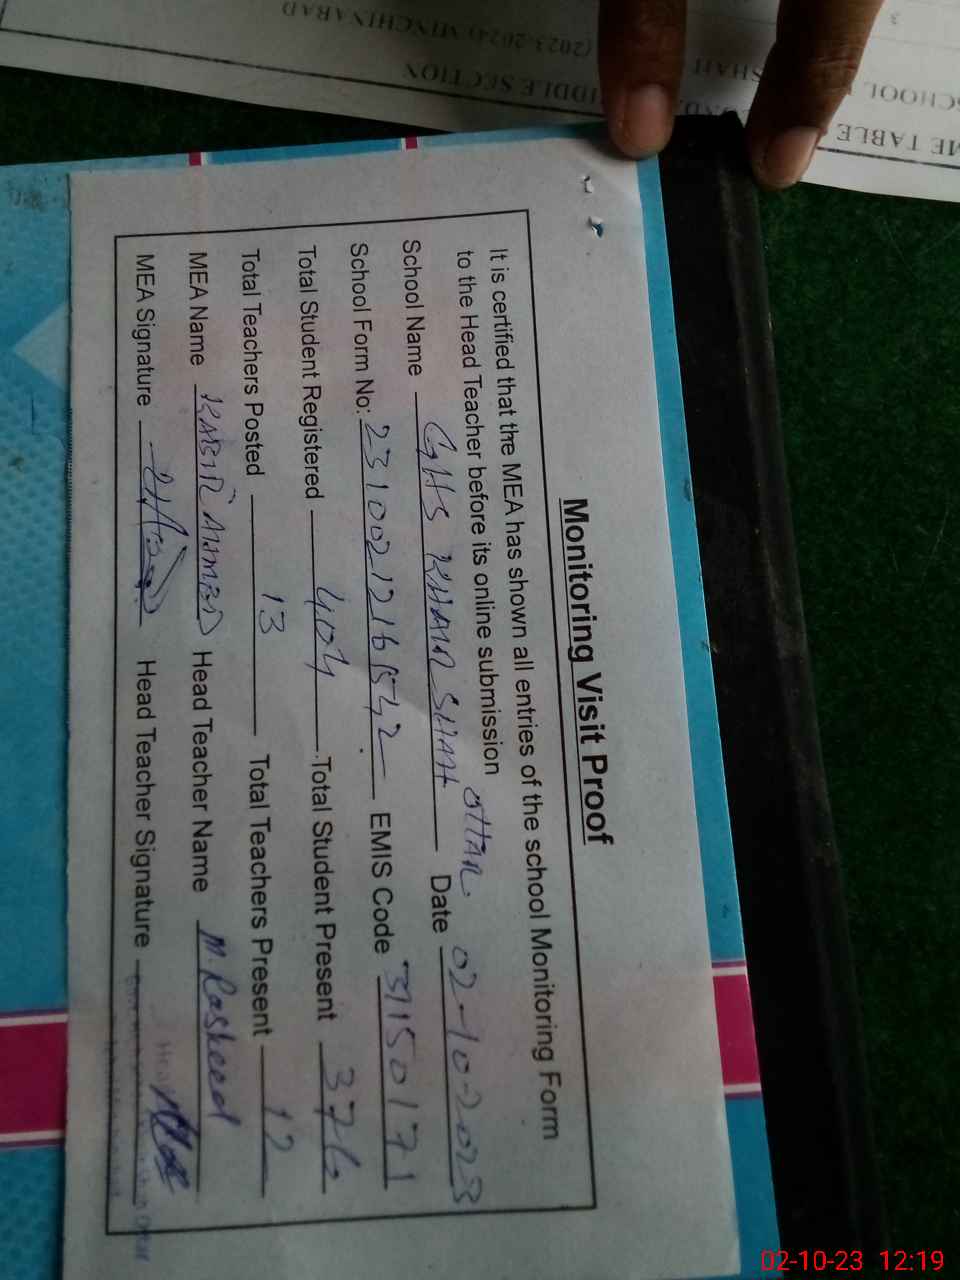 Monitoring Visit Proof
It is certified that the MEA has shown all entries of the school Monitoring Form
to the Head Teacher before its online submission
School Name GHS KHAIR SHAH OTTAR Date 02-10-2023
School Form No: 2310021216542 EMIS Code 31150171
Total Student Registered 404 Total Student Present 376
Total Teachers Posted 13 Total Teachers Present 12
MEA Name KABIR AHMED Head Teacher Name M. Rasheed
MEA Signature Head Teacher Signature
ME TABLE
SCHOOL SHAH
MIDDLE SECTION
(2023-2024) MINCHINABAD
3
02-10-23 12:19